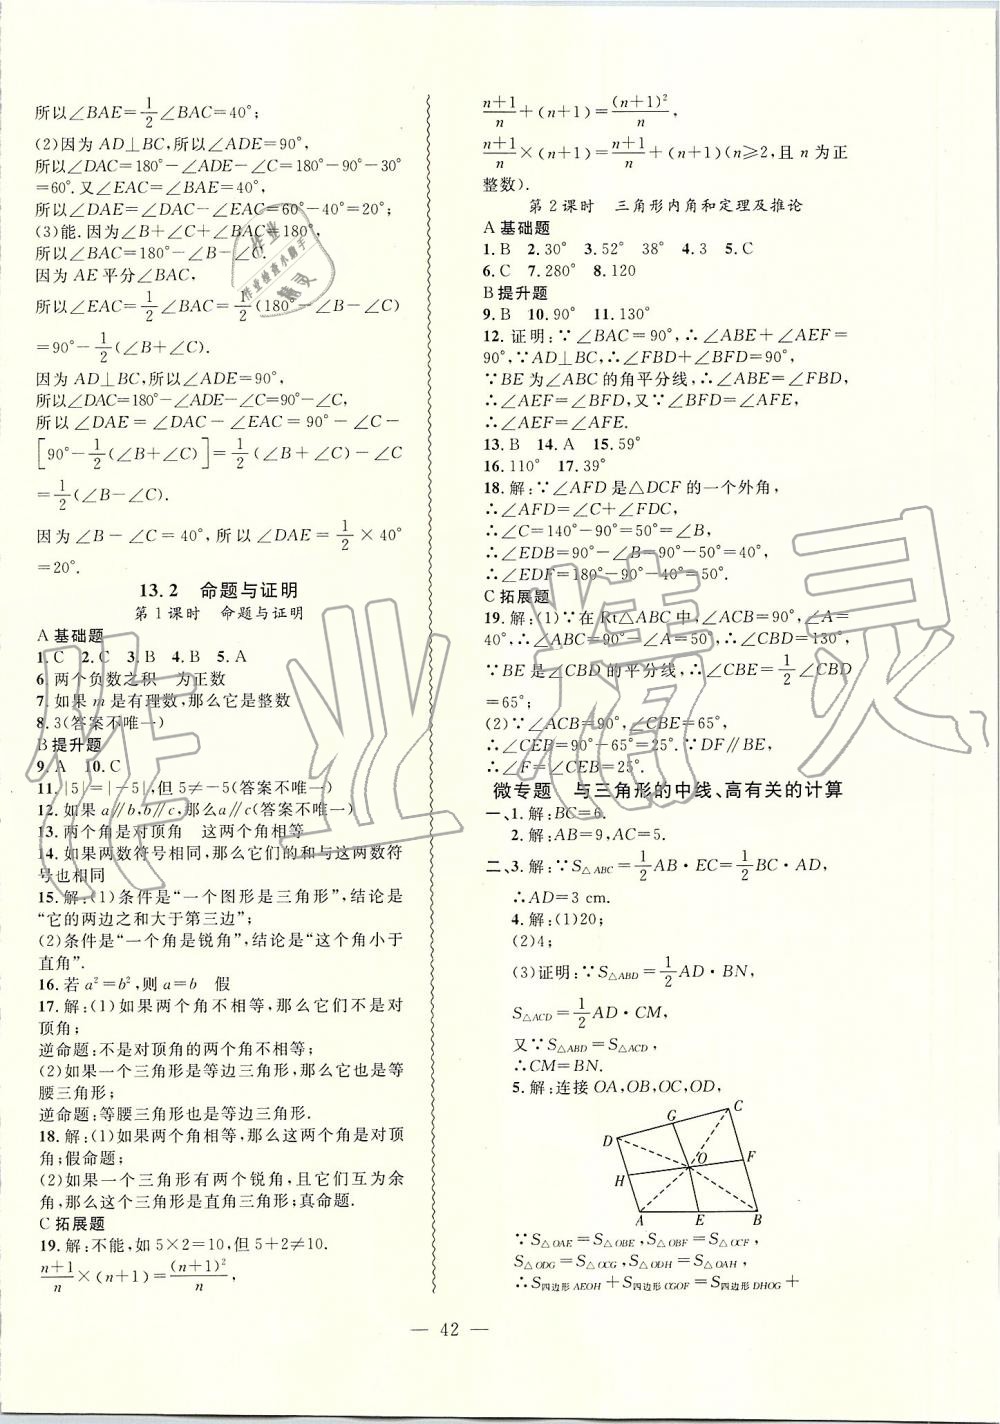 所以∠BAE=1/2∠BAC=40°;
(2)因为 AD⊥BC,所以∠ADE=90°,
所以∠DAC=180°-∠ADE-∠C=180°-90°-30°
=60°.又∠EAC=∠BAE=40°,
所以∠DAE=∠DAC-∠EAC=60°-40°=20°;
(3)能.因为∠B+∠C+∠BAC=180°,
所以∠BAC=180°-∠B-∠C.
因为 AE 平分∠BAC,
所以∠EAC=1/2∠BAC=1/2(180°-∠B-∠C)
=90°-1/2(∠B+∠C).
因为 AD⊥BC,所以∠ADE=90°,
所以∠DAC=180°-∠ADE-∠C=90°-∠C,
所以∠DAE=∠DAC-∠EAC=90°-∠C-
[90°-1/2(∠B+∠C)]=1/2(∠B+∠C)-∠C
=1/2(∠B-∠C).
因为∠B-∠C=40°,所以∠DAE=1/2×40°
=20°.
13.2 命题与证明
第1课时 命题与证明
A 基础题
1.C 2.C 3.B 4.B 5.A
6.两个负数之积 为正数
7.如果 m 是有理数,那么它是整数
8.3(答案不唯一)
B 提升题
9.A 10.C
11.|5|=|-5|,但5≠-5(答案不唯一)
12.如果 a∥b,b∥c,那么a∥c(答案不唯一)
13.两个角是对顶角 这两个角相等
14.如果两数符号相同,那么它们的和与这两数符
号也相同
15.解:(1)条件是“一个图形是三角形”,结论是
“它的两边之和大于第三边”;
(2)条件是“一个角是锐角”,结论是“这个角小于
直角”.
16.若 a²=b²,则 a=b 假
17.解:(1)如果两个角不相等,那么它们不是对
顶角;
逆命题:不是对顶角的两个角不相等;
(2)如果一个三角形是等边三角形,那么它是等
腰三角形;
逆命题:等腰三角形也是等边三角形.
18.解:(1)如果两个角相等,那么这两个角是对顶
角;假命题;
(2)如果一个三角形有两个锐角,且它们互为余
角,那么这个三角形是直角三角形;真命题.
C 拓展题
19.解:不能,如 5×2=10,但 5+2≠10.
(n+1)/n×(n+1)=(n+1)²/n,
(n+1)/n+(n+1)=(n+1)²/n,
(n+1)/n×(n+1)=(n+1)/n+(n+1)(n≥2,且 n 为正
整数).
第2课时 三角形内角和定理及推论
A 基础题
1.B 2.30° 3.52° 38° 4.3 5.C
6.C 7.280° 8.120
B 提升题
9.B 10.90° 11.130°
12.证明:∵∠BAC=90°,∴∠ABE+∠AEF=
90°,∵AD⊥BC,∴∠FBD+∠BFD=90°,
∵BE 为∠ABC 的角平分线,∴∠ABE=∠FBD,
∴∠AEF=∠BFD,又∵∠BFD=∠AFE,
∴∠AEF=∠AFE.
13.B 14.A 15.59°
16.110° 17.39°
18.解:∵∠AFD 是△DCF 的一个外角,
∴∠AFD=∠C+∠FDC,
∴∠C=140°-90°=50°=∠B,
∴∠EDB=90°-50°=40°,
∴∠EDF=180°-90°-40°=50°.
C 拓展题
19.解:(1)∵在 Rt△ABC 中,∠ACB=90°,∠A=
40°,∴∠ABC=90°-∠A=50°,∴∠CBD=130°,
∵BE 是∠CBD 的平分线,∴∠CBE=1/2∠CBD
=65°;
(2)∵∠ACB=90°,∠CBE=65°,
∴∠CEB=90°-65°=25°.∵DF∥BE,
∴∠F=∠CEB=25°.
微专题 与三角形的中线、高有关的计算
一、1.解:BC=6.
2.解:AB=9,AC=5.
二、3.解:∵S△ABC=1/2AB·EC=1/2BC·AD,
∴AD=3 cm.
4.解:(1)20;
(2)4;
(3)证明:∵S△ABD=1/2AD·BN,
S△ACD=1/2AD·CM,
又∵S△ABD=S△ACD,
∴CM=BN.
5.解:连接 OA,OB,OC,OD,
C
G
D
O
F
H
A E B
∵S△OAE=S△OBE,S△OBF=S△OCF,
S△ODG=S△OCG,S△ODH=S△OAH,
∴S四边形AEOH+S四边形CGOF=S四边形DHOG+
— 42 —
作业精灵
作业
作业检查小助手
精灵